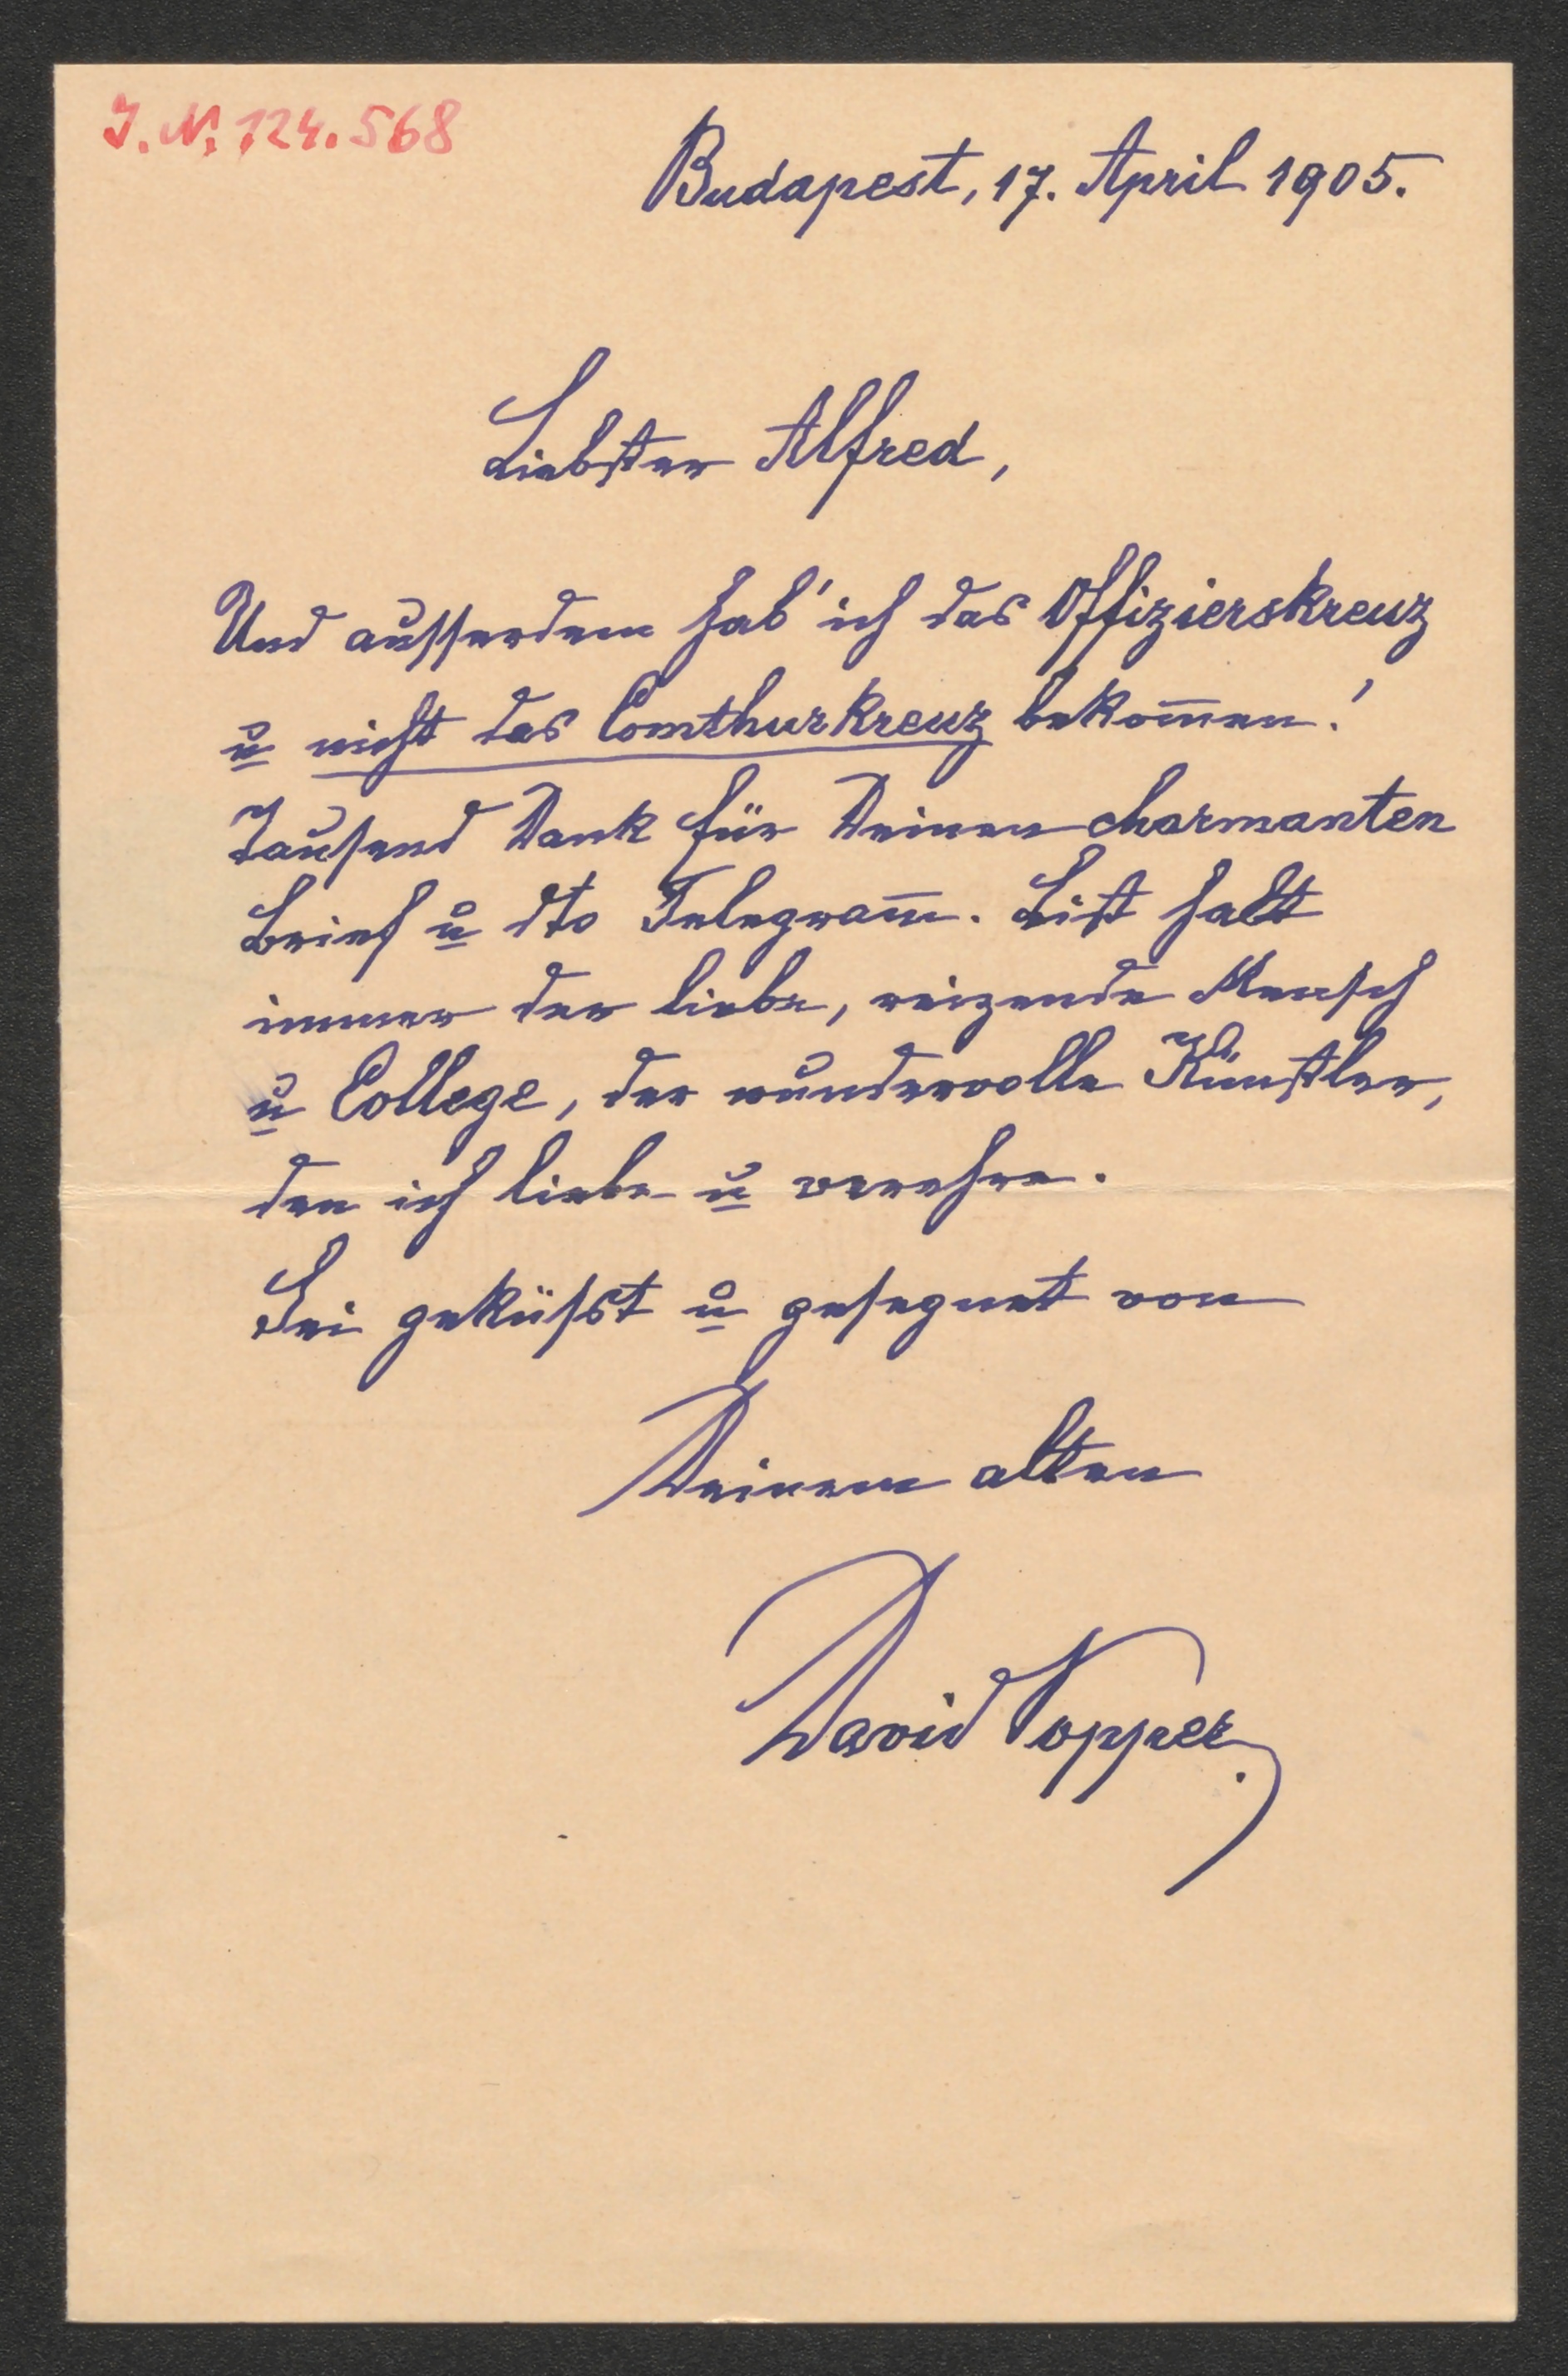 J. N. 124.568
Budapest, 17. April 1905.
Liebster Alfred,
Und ausserdem hab' ich das Offizierskreuz
u nicht das Comthurkreuz bekom̅en!
Tausend Dank für Deinen charmanten
Brief u dto Telegram̅. Bist halt
immer der liebe, reizende Mensch
u College, der wundervolle Künstler,
den ich liebe u verehre.
Sei geküsst u gesegnet von
Deinem alten
David Popper.